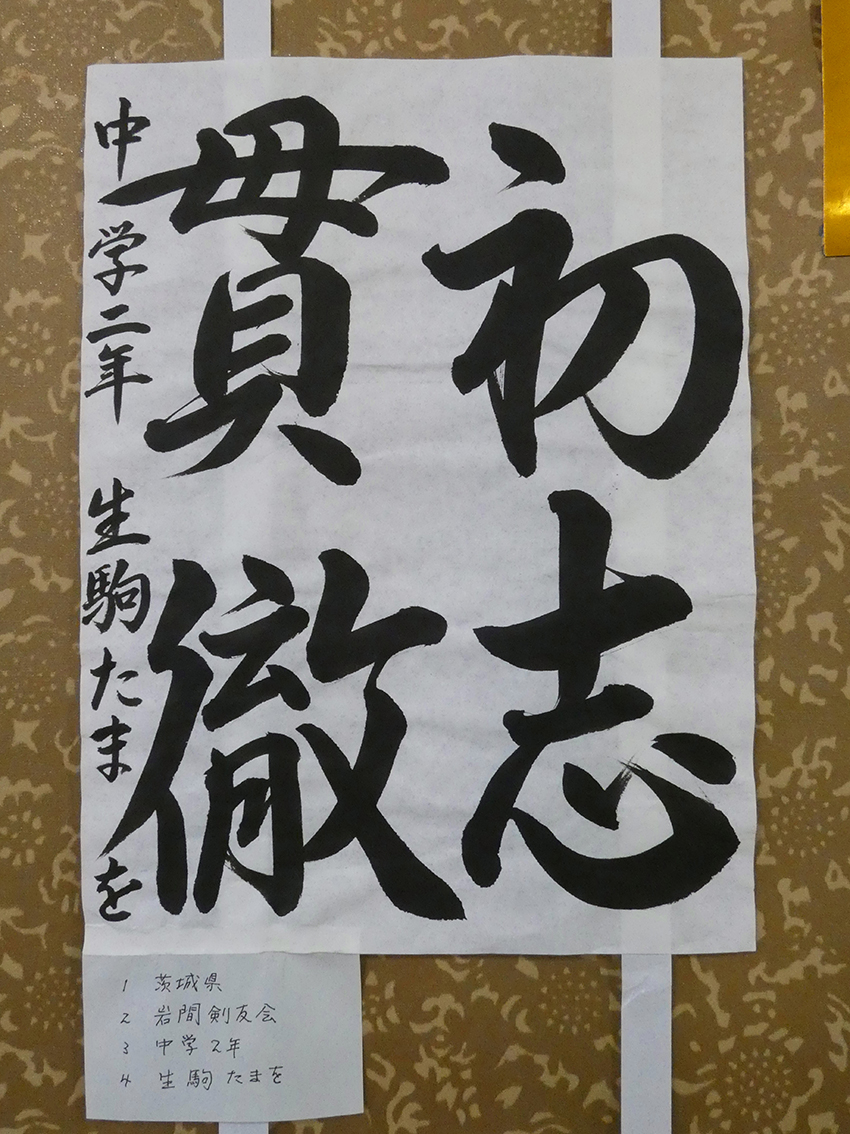 初志
貫徹
中学二年 生駒たまを
1 茨城県
2 岩間剣友会
3 中学2年
4 生駒たまを